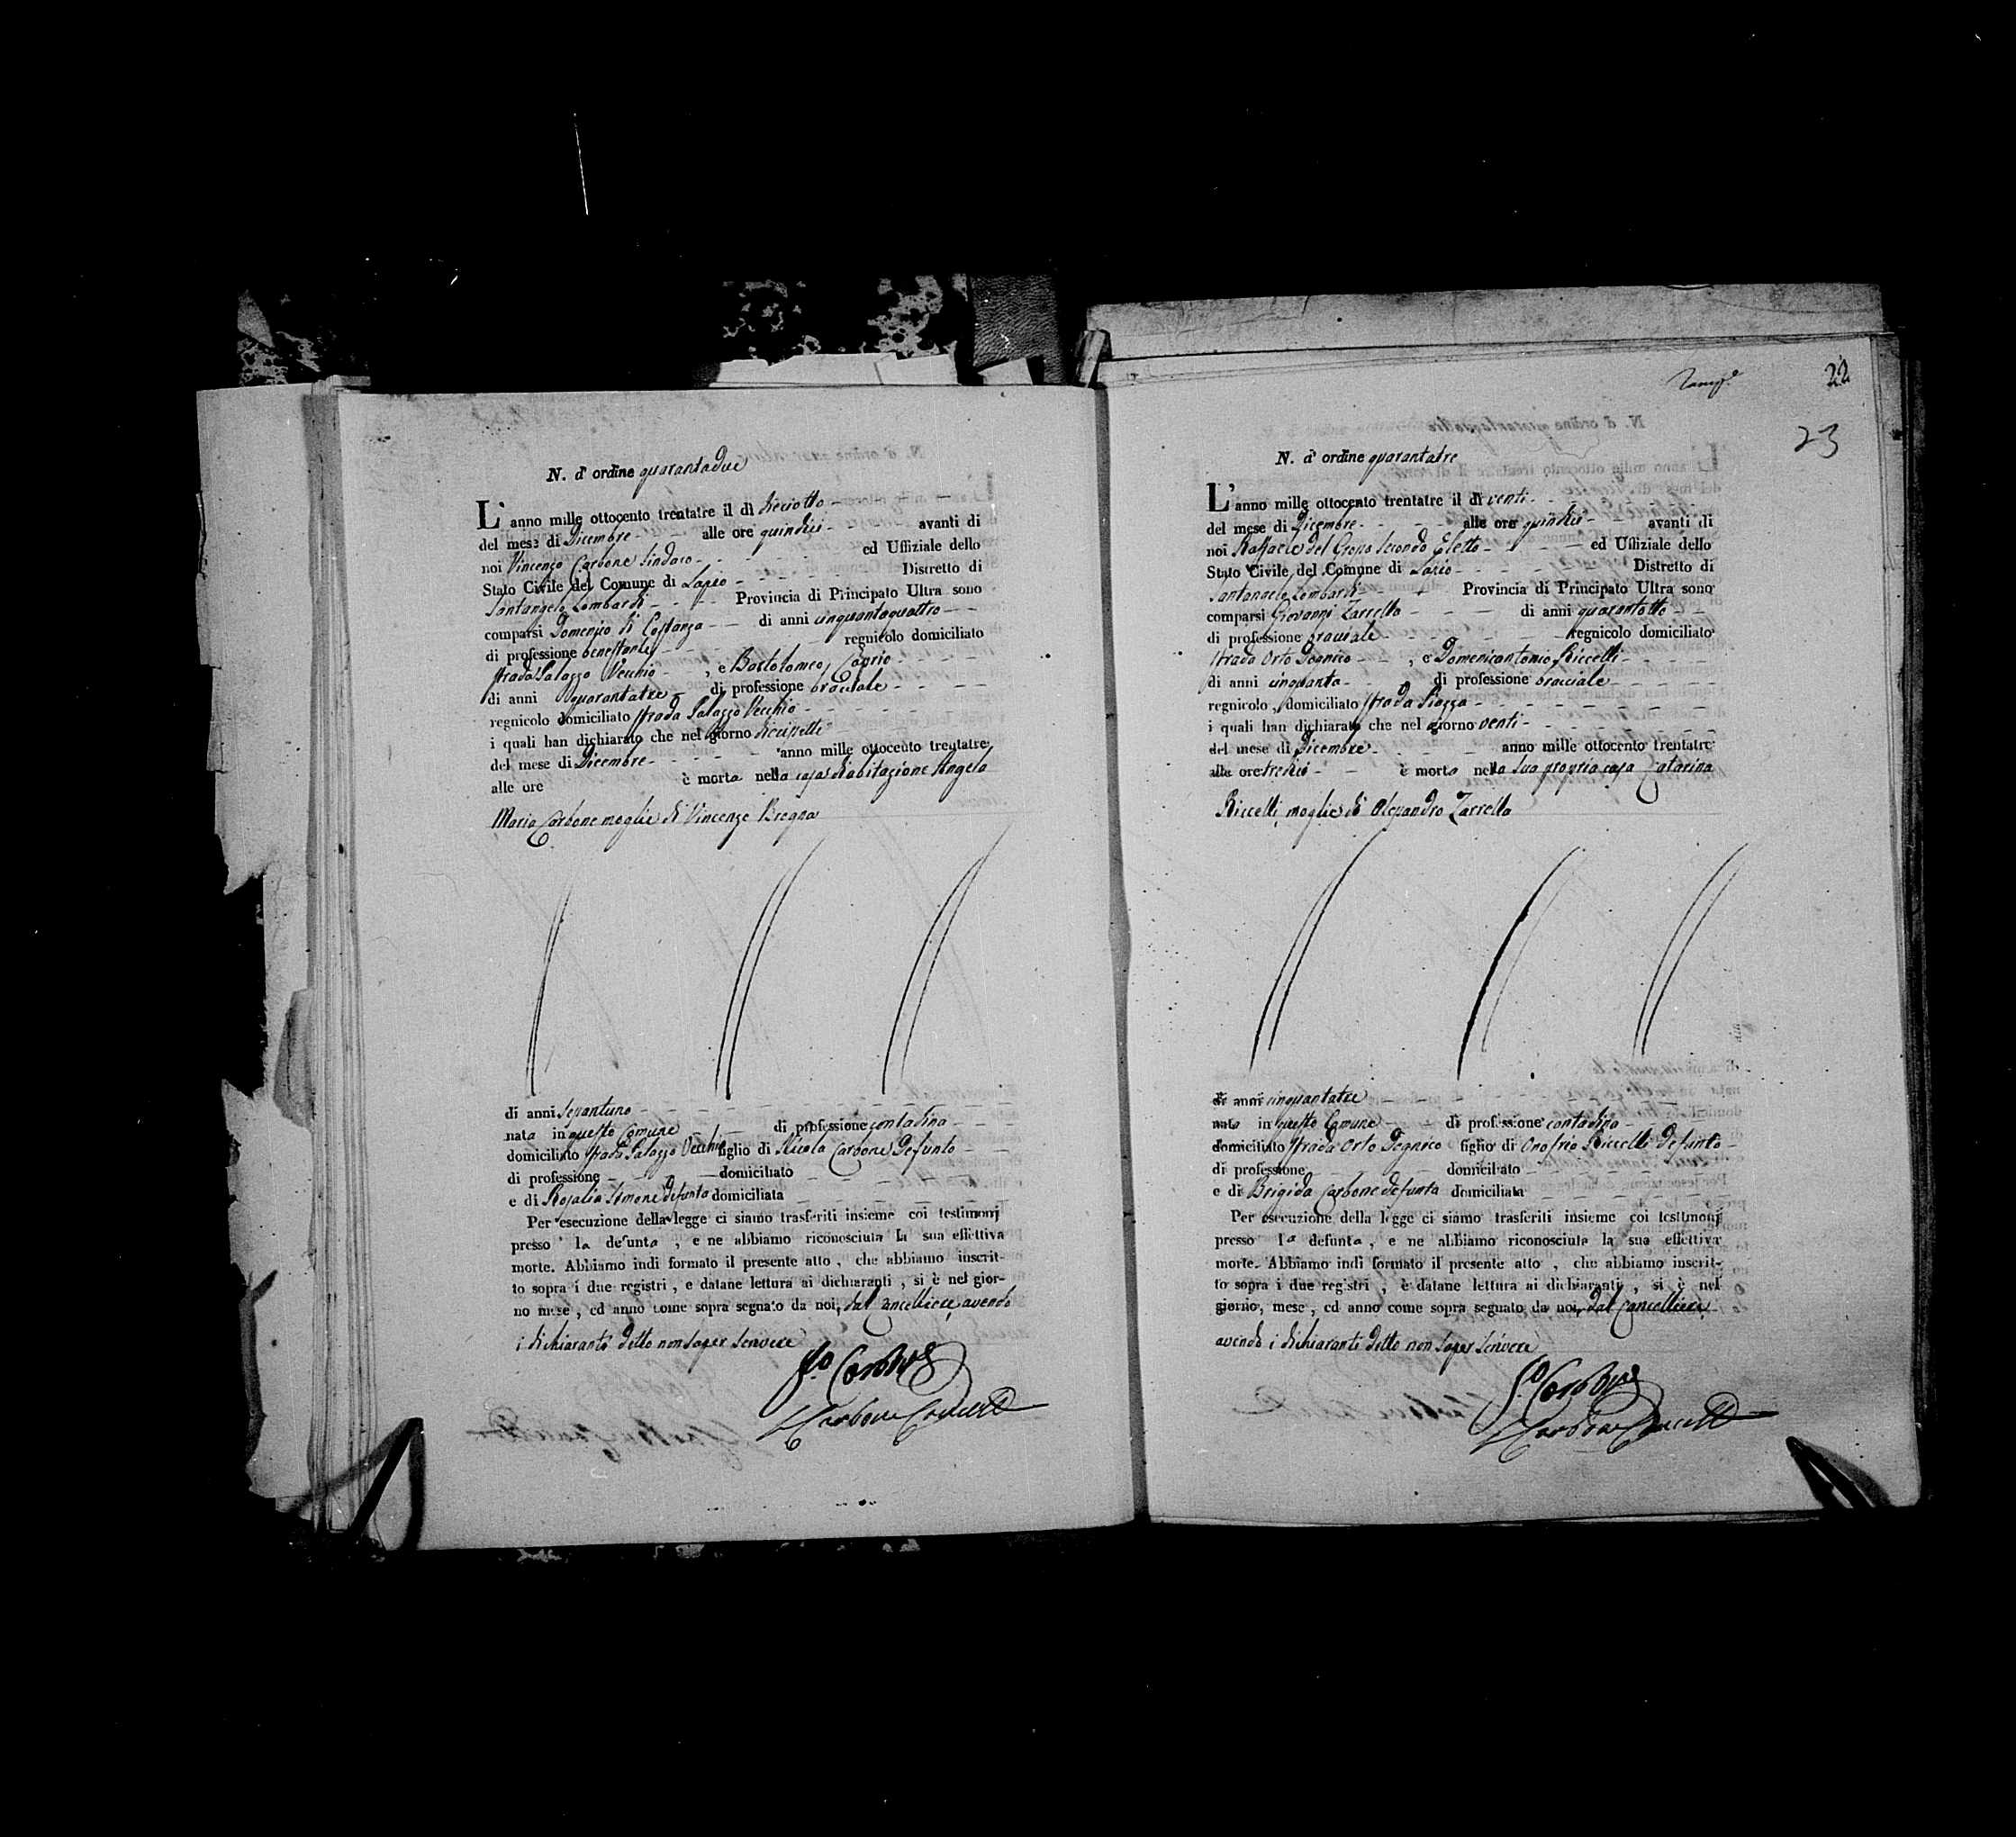 N. d'ordine quarantadue
L'anno mille ottocento trentatre il dì dieciotto
del mese di Dicembre alle ore quindici avanti di
noi Vincenzo Carbone Sindaco ed Uffiziale dello
Stato Civile del Comune di Lapio Distretto di
Santangelo Lombardi Provincia di Principato Ultra sono
comparsi Domenico di Costanza di anni cinquantaquattro
di professione benestante regnicolo domiciliato
strada Palazzo Vecchio , e Bartolomeo Caprio
di anni quarantatre di professione bracciale
regnicolo domiciliato strada Palazzo Vecchio
i quali han dichiarato che nel giorno diecisette
del mese di Dicembre anno mille ottocento trentatre
alle ore è morta nella casa d'abitazione Angela
Maria Carbone moglie di Vincenzo Bregna
di anni
nata in questo Comune di professione contadina
domiciliato strada Palazzo Vecchio figlio di Nicola Carbone Defunto
di professione domiciliato
e di Rosalia Simone defunta domiciliata
Per esecuzione della legge ci siamo trasferiti insieme coi testimonj
presso la defunta , e ne abbiamo riconosciuta la sua effettiva
morte. Abbiamo indi formato il presente atto , che abbiamo inscrit-
to sopra i due registri , e datane lettura ai dichiaranti , si è nel gior-
no mese , ed anno come sopra segnato da noi, dal Cancelliere, avendo
i dichiaranti detto non saper scrivere
Carbone
Carbone Cancell
22
23
N. d'ordine quarantatre
L'anno mille ottocento trentatre il dì venti
del mese di Dicembre alle ore quindici avanti di
noi Raffaele del Grosso Secondo Eletto ed Uffiziale dello
Stato Civile del Comune di Lapio Distretto di
Santangelo Lombardi Provincia di Principato Ultra sono
comparsi Giovanni Zarrella di anni quarantotto
di professione bracciale regnicolo domiciliato
strada Orto Dognico , e Domenicantonio Riccelli
di anni cinquanta di professione bracciale
regnicolo , domiciliato strada Piazza
i quali han dichiarato che nel giorno venti
del mese di Dicembre anno mille ottocento trentatre
alle ore tredici è morta nella sua propria casa Catarina
Riccelli moglie di Alesandro Zarrella
di anni cinquantatre
nata in questo Comune di professione contadina
domiciliato strada Orto Dognico figlio di Onofrio Riccelli defunto
di professione domiciliato
e di Brigida Carbone defunta domiciliata
Per esecuzione della legge ci siamo trasferiti insieme coi testimonj
presso la defunta , e ne abbiamo riconosciuta la sua effettiva
morte. Abbiamo indi formato il presente atto , che abbiamo inscrit-
to sopra i due registri , e datane lettura ai dichiaranti , si è nel
giorno, mese , ed anno come sopra segnato da noi, dal Cancelliere,
avendo i dichiaranti detto non saper scrivere
Carbone
Carbone Cancell